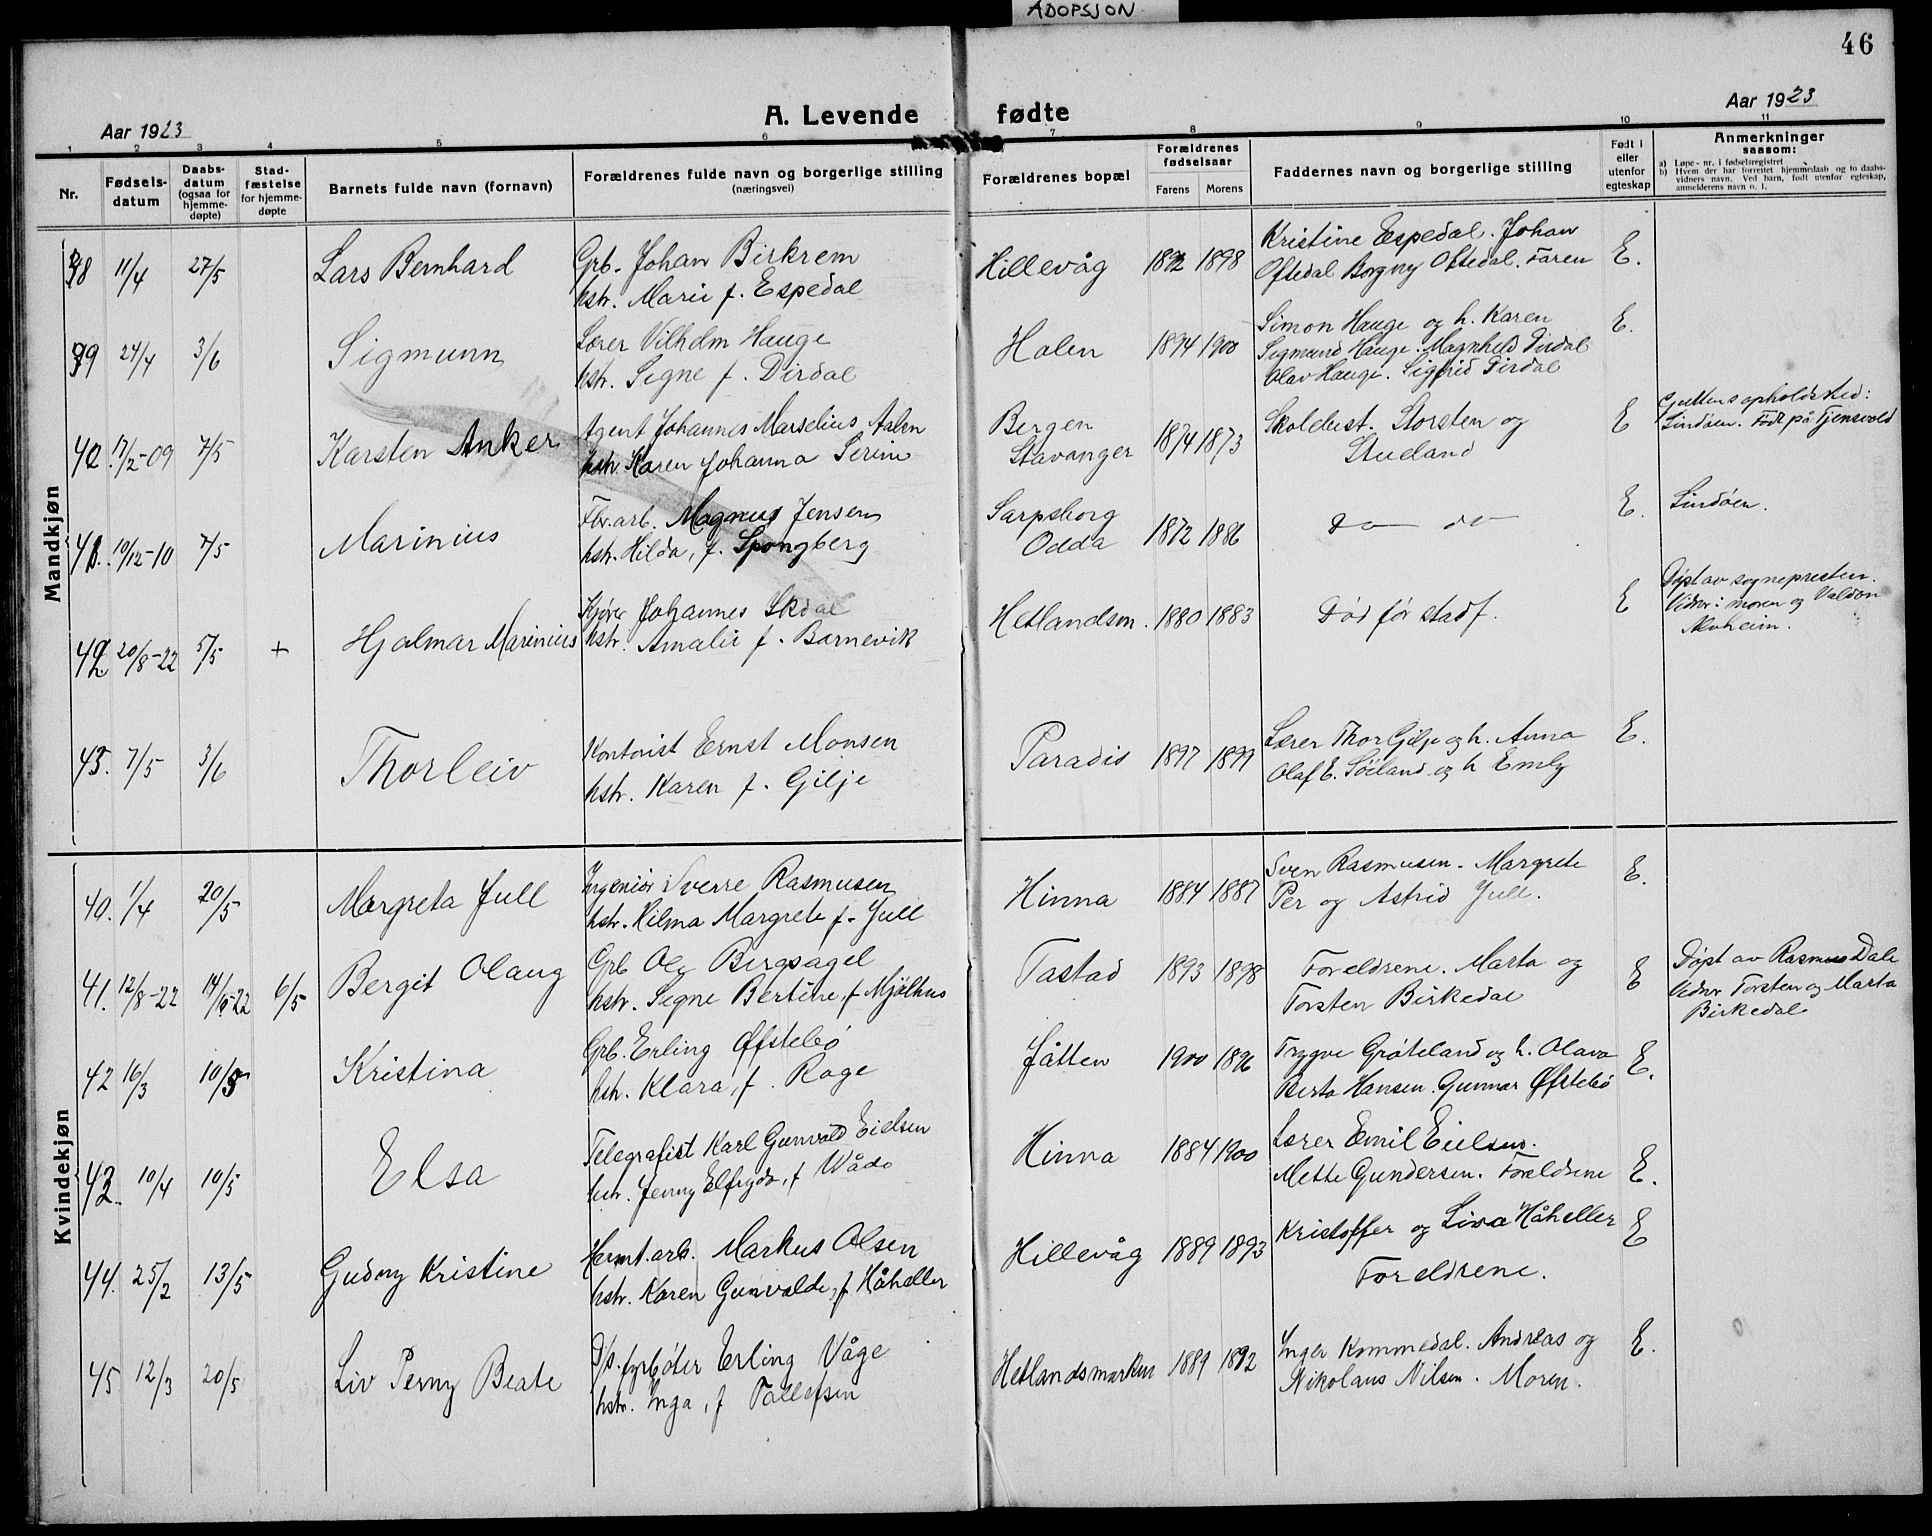 ADOPSJON
46
Aar 1923
A. Levende fødte
Aar 1923
1 2 3 4 5 6 7 8 9 10 11
Nr.
Fødsels-
datum
Daabs-
datum
(ogsaa for
hjemme-
døpte)
Stad-
fæstelse
for hjemme-
døpte
Barnets fulde navn (fornavn)
Forældrenes fulde navn og borgerlige stilling
(næringsvei)
Forældrenes bopæl
Forældrenes
fødselsaar
Farens Morens
Faddernes navn og borgerlige stilling
Født i
eller
utenfor
egteskap
Anmerkninger
saasom:
a) Løpe-nr. i fødselsregistret
b) Hvem der har forrettet hjemmedaab og to daabs-
vidners navn. Ved barn, født utenfor egteskap,
anmelderens navn o. l.
Mandkjøn
38 11/4 27/5 Lars Bernhard
Grb. Johan Birkrem
hstr. Marie f. Espedal
Hillevåg 1892 1898
Kristine Espedal. Johan
Oftedal Borgny Oftedal. Faren
E.
39 24/4 3/6 Sigmunn
Lærer Vilhelm Hauge
hstr. Signe f. Dirdal
Holen 1894 1900
Simon Hauge og h. Karen
Sigmund Hauge. Magnhild Dirdal
Olav Hauge. Sigfrid Dirdal
E.
40. 17/2-09 7/5 Karsten Anker
Agent Johannes Marselius Aalen
hstr. Karen Johanna Serine
Bergen
Stavanger
1874 1873
Skolebest. Storsten og
Stueland
E
Guttens opholdsted:
Lindøen. Født på Tjensvold
41. 10/12-10 7/5 Marinius
Fbr.arb. Magnus Jensen
hstr. Hilda, f. Spongberg
Sarpsborg
Odda
1872 1886
Do do
E.
Lindøen.
42 20/8-22 5/5 + Hjalmar Marinius
Kjører Johannes Skdal
hstr. Amalie f. Barnevik
Hetlandsm. 1880 1883
Død før stadf.
E
Døpt av sognepresten.
Vidner: moren og Valdon
43. 7/5 3/6 Thorleiv
Kontorist Ernst Monsen
hstr. Karen f. Gilje
Paradis 1897 1899
Lærer Thor Gilje og h. Anna
Olaf E. Söiland og h Emly
E.
Kvindekjøn
40. 1/4 20/5 Margreta Jull
Ingeniør Sverre Rasmusen
hstr. Hilma Margrete f. Jull
Hinna 1884 1887
Sven Rasmusen. Margrete
Per og Astrid Jull.
E.
41. 12/8-22 14/9-22 6/5 Bergit Olaug
Grb Ole Bergsagel
hstr. Signe Bertine, f Mjölhus
Tastad 1893 1898
Foreldrene. Marta og
Torsten Birkedal
E
Døpt av Rasmus Dale
Vidner Torsten og Marta
Birkedal
42 16/3 10/5 Kristina
Grb. Erling Øfstebö
hstr. Klara, f. Rage
Jåtten 1900 1896
Trygve Gröteland og h. Olava
Berta Hansen. Gunnar Øfstebö
E.
43. 10/4 10/5 Elsa
Telegrafist Karl Gunvald Eielsen
hstr. Jenny Elfryda, f Wådo
Hinna 1884 1900
Lærer Emil Eielsen.
Mette Gundersen. Foreldrene
E.
44. 25/2 13/5 Gudny Kristine
Hermt.arb. Markus Olsen
hstr. Karen Gunvalde, f Håheller
Hillevåg 1889 1893
Kristoffer og Liva Håheller
Foreldrene.
E
45 12/3 20/5 Liv Perny Beate
D/s. fyrböter Erling Våge
hstr. Inga, f Tallefsen
Hetlandsmarken 1889 1892
Inger Kommedal. Andreas og
Nikolaus Nilsen. Moren.
E.